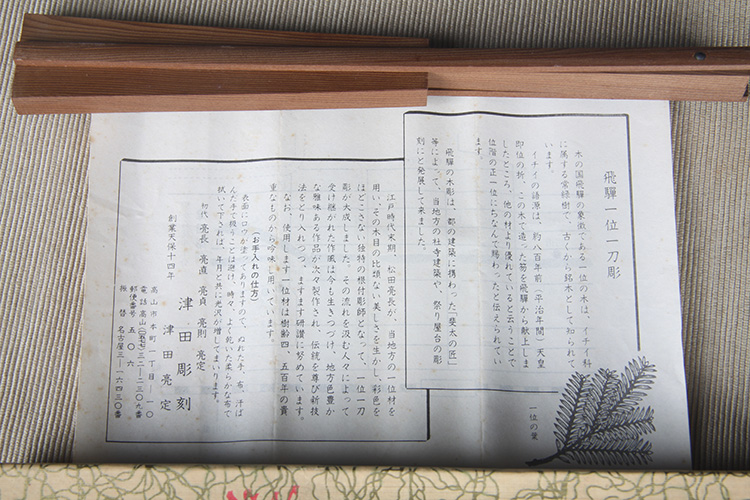 飛騨一位一刀彫
木の国飛騨の象徴である一位の木は、イチイ科
に属する常緑樹で、古くから銘木として知られて
います。
イチイの語原は、約八百年前（平治年間）天皇
即位の折、この木で造った笏を飛騨から献上しま
したところ、他の材より優れていると云うことで
位階の正一位にちなんで賜わったと伝えられてい
ます。
飛騨の木彫は、都の建築に携わった「斐太の匠」
等によって、当地方の社寺建築や、祭り屋台の彫
刻にと発展して来ました。
一位の葉
江戸時代末期、松田亮長が、当地方の一位材を
用い、その木目の比類ない美しさを生かし、彩色を
ほどこさない独特の根付彫師となって、一位一刀
彫が大成しました。その流れを汲む人々によって
受け継がれた作風は今も生きつづけ、地方色豊か
な雅味ある作品が次々製作され、伝統を尊び新技
法をとり入れつつ、ますます研讃に努めています。
なお、使用します一位材は樹齢四、五百年の貴
重なものから吟味し用いています。
（お手入れの仕方）
表面にロウが塗ってありますので、ぬれた手、布、汗ば
んだ手で扱うことは避け、時々、よく乾いた柔らかな布で
拭いて下されば、年月と共に光沢が増してまいります。
初代 亮長 亮直 亮貞 亮則 亮定
創業天保十四年
津田彫刻
津田亮定
高山市本町一丁目一一〇
電話高山三二一二三〇九番
郵便番号 五〇六
振替 名古屋三一一六四三〇番